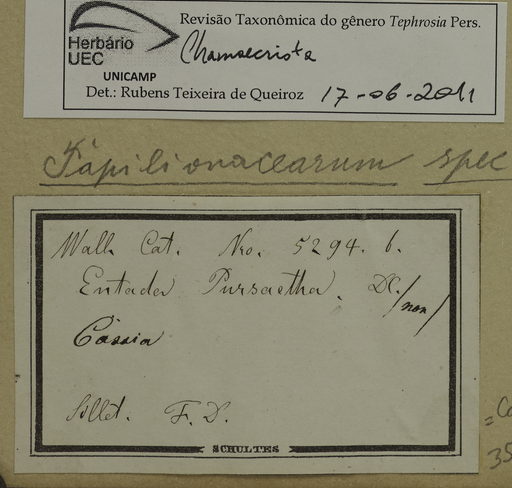 Herbário
UEC
UNICAMP
Revisão Taxonômica do gênero Tephrosia Pers.
Chamaecrista
Det.: Rubens Teixeira de Queiroz 17-06-2011
Papilionacearum spec
Wall. Cat. Nro. 5294. b.
Entada Pursaetha. DC. /non/
Cassia
Sillet. F. D.
SCHULTES
35